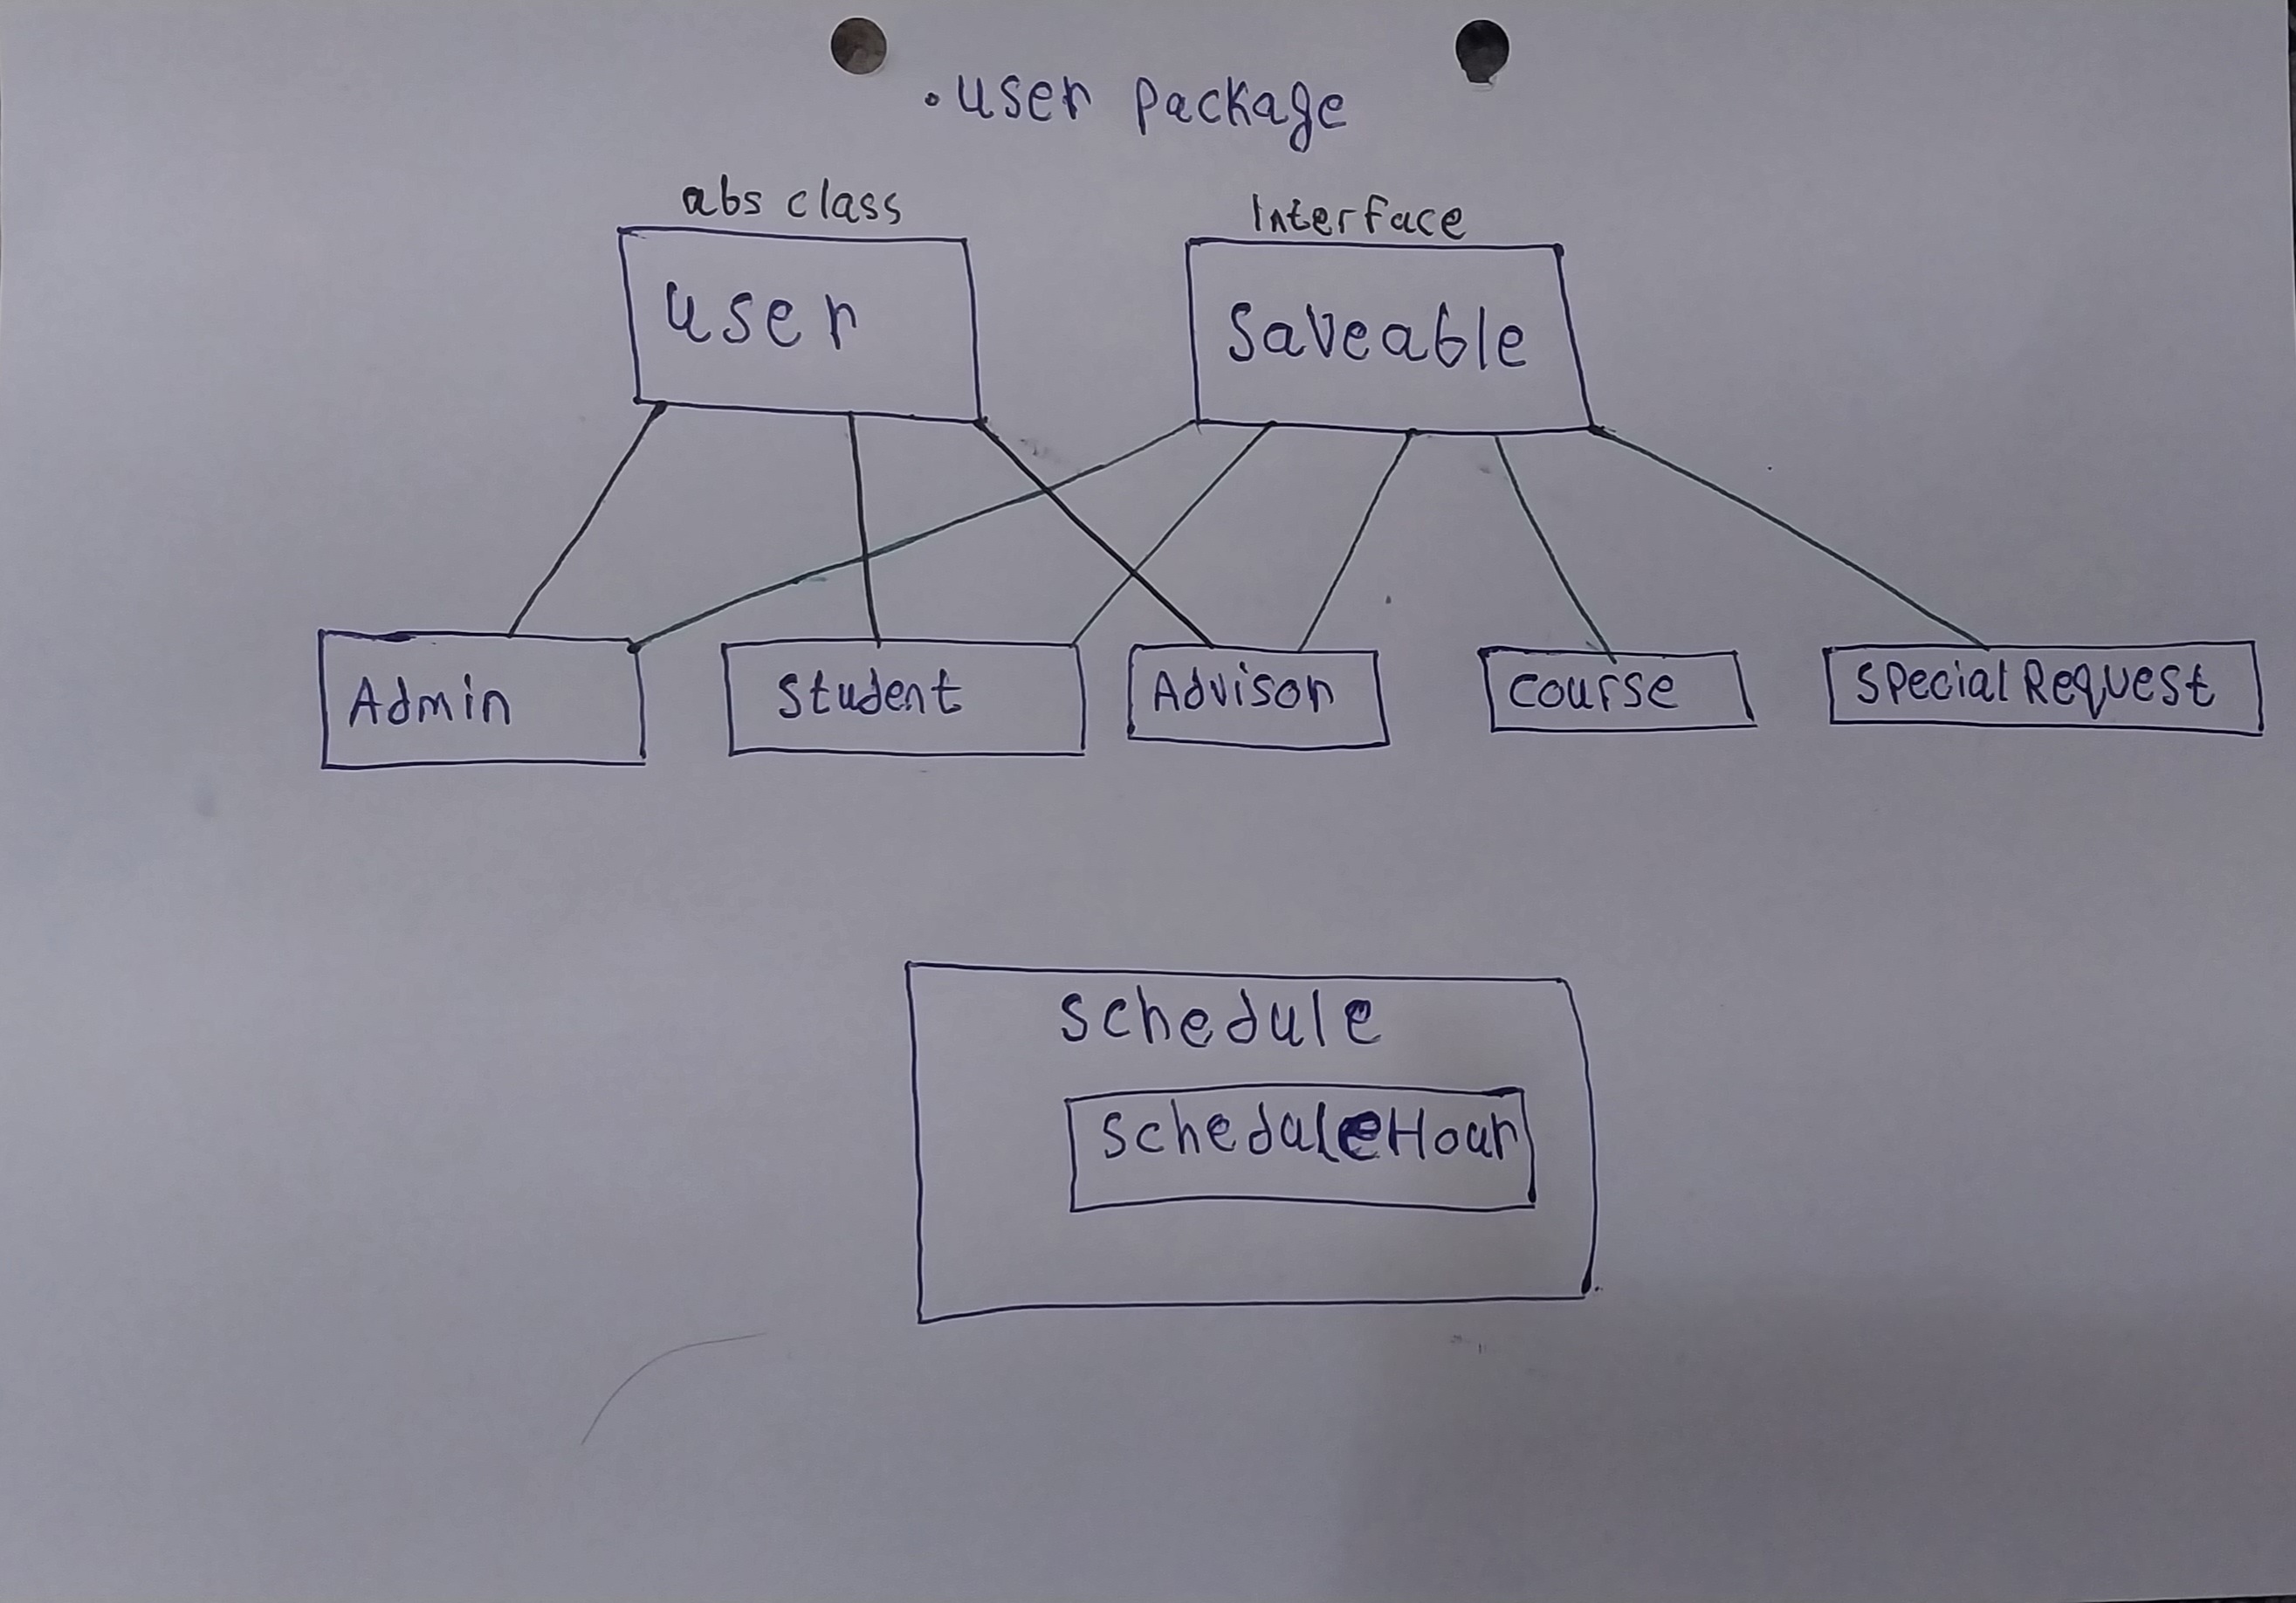 .user package
abs class
Interface
user
Saveable
Admin
Student
Advisor
course
SpecialRequest
schedule
scheduleHour